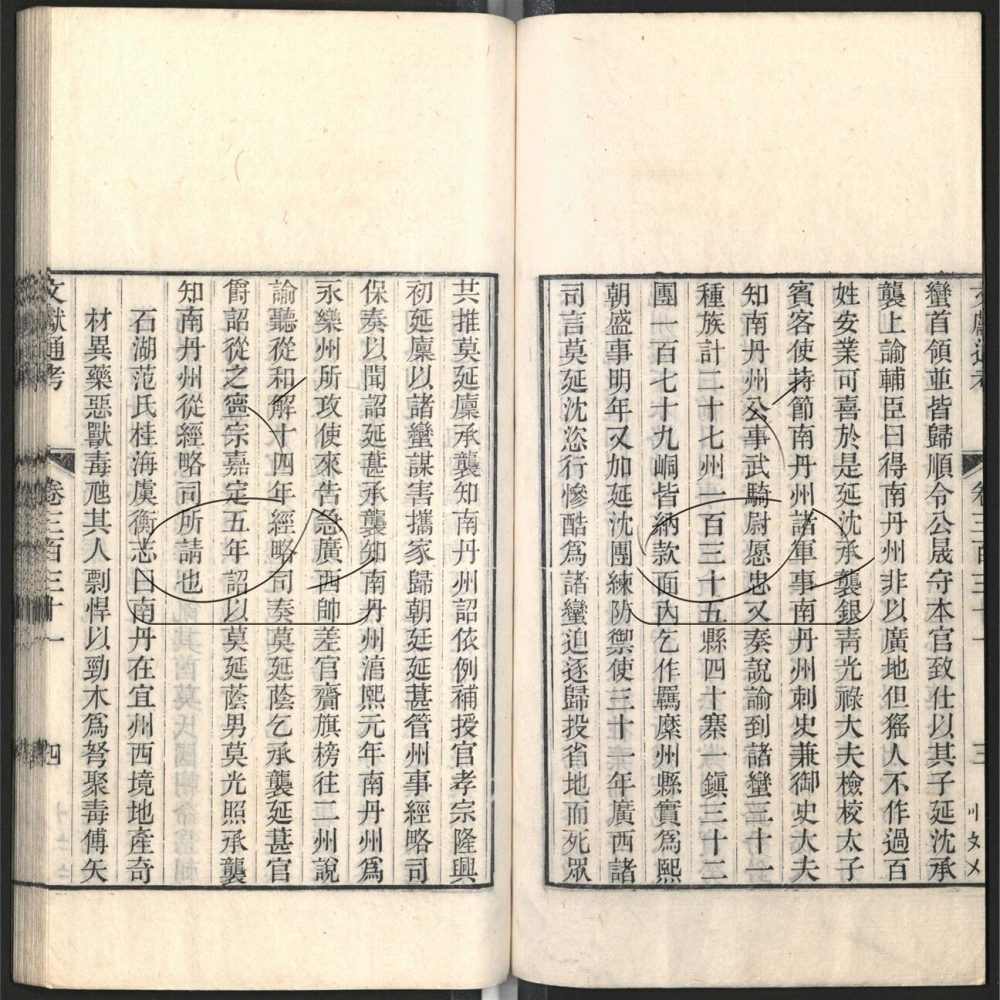 文獻通考 卷三百三十一 三
蠻首領並皆歸順令公晟守本官致仕以其子延沈承
襲上諭輔臣曰得南丹州非以廣地但猺人不作過百
姓安業可喜於是延沈承襲銀青光祿大夫檢校太子
賓客使持節南丹州諸軍事南丹州刺史兼御史大夫
知南丹州公事武騎尉愿忠又奏說諭到諸蠻三十一
種族計二十七州一百三十五縣四十寨一鎮三十二
團一百七十九峒皆納款面內乞作羈縻州縣實爲熙
朝盛事明年又加延沈團練防禦使三十一年廣西諸
司言莫延沈恣行慘酷爲諸蠻迫逐歸投省地而死眾
共推莫延廩承襲知南丹州詔依例補授官孝宗隆興
初延廩以諸蠻謀害攜家歸朝廷延葚管州事經略司
保奏以聞詔延葚承襲知南丹州淳熙元年南丹州爲
永樂州所攻使來告急廣西帥差官齎旗榜往二州說
諭聽從和解十四年經略司奏莫延蔭乞承襲延葚官
爵詔從之寧宗嘉定五年詔以莫延蔭男莫光照承襲
知南丹州從經略司所請也
石湖范氏桂海虞衡志曰南丹在宜州西境地產奇
材異藥惡獸毒虺其人剽悍以勁木爲弩聚毒傅矢
文獻通考 卷三百三十一 四